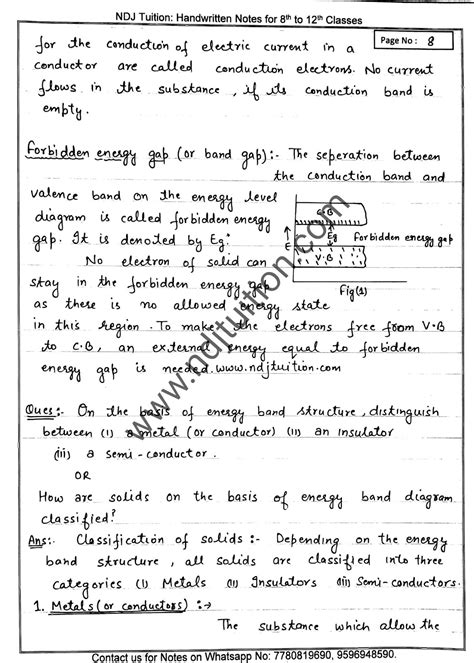 NDJ Tuition: Handwritten Notes for 8th to 12th Classes
Page No : 8
for the conduction of electric current in a
conductor are called conduction electrons. No current
flows in the substance, if its conduction band is
empty.
Forbidden energy gap (or band gap):- The seperation between
the conduction band and
valence band on the energy level
diagram is called forbidden energy
gap. It is denoted by Eg.
No electron of solid can
stay in the forbidden energy gap
as there is no allowed energy state
in this region. To make the electrons free from V.B
to C.B, an external energy equal to forbidden
energy gap is needed. www.ndjtuition.com
C.B
E
Eg
Forbidden energy gap
V.B
Fig(1)
Ques:- On the basis of energy band structure, distinguish
between (i) a metal (or conductor) (ii) an insulator
(iii) a semi-conductor.
OR
How are solids on the basis of energy band diagram
classified?
Ans:- Classification of solids :- Depending on the energy
band structure, all solids are classified into three
categories (i) Metals (ii) Insulators (iii) Semi-conductors.
1. Metals (or conductors) :→
The substance which allow the
www.ndjtuition.com
Contact us for Notes on Whatsapp No: 7780819690, 9596948590.